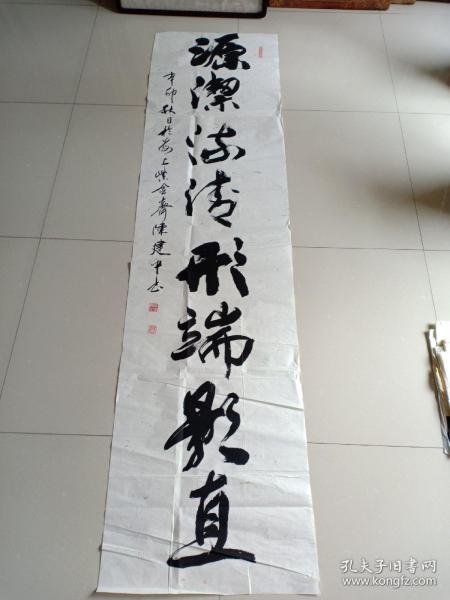 源潔流清形端影直
辛卯秋日於海上紫金齋陳建中書
孔夫子旧书网
www.kongfz.com